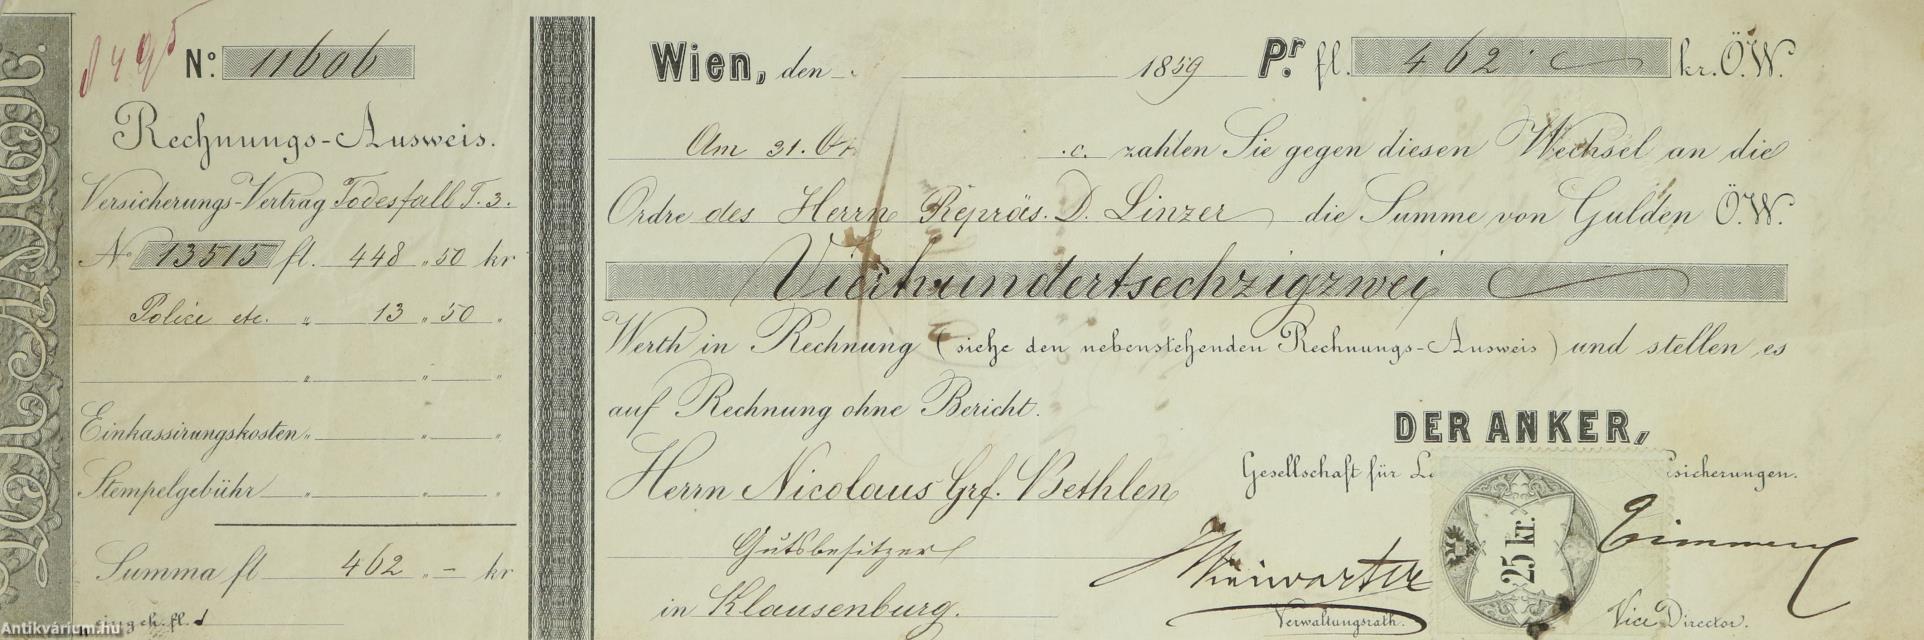 8495
No. 11606
Rechnungs-Ausweis.
Versicherungs-Vertrag Todesfall T. 3.
No 13515 fl. 448 „ 50 kr
Police etc. „ 13 „ 50 „
„ „ „
Einkassirungskosten „ „ „
Stempelgebühr „ „ „
Summa fl 462 „ – kr
Wien, den 1859 Pr. fl. 462 kr. Ö.W.
Am 31. .c. zahlen Sie gegen diesen Wechsel an die
Ordre des Herrn Repräs. D. Linzer die Summe von Gulden Ö.W.
Vierhundertsechzigzwei
Werth in Rechnung (siehe den nebenstehenden Rechnungs-Ausweis) und stellen es
auf Rechnung ohne Bericht.
DER ANKER,
Gesellschaft für
Herrn Nicolaus Grf. Bethlen
Gutsbesitzer
in Klausenburg.
25 kr.
Verwaltungsrath.
Vice Director.
Antikvárium.hu